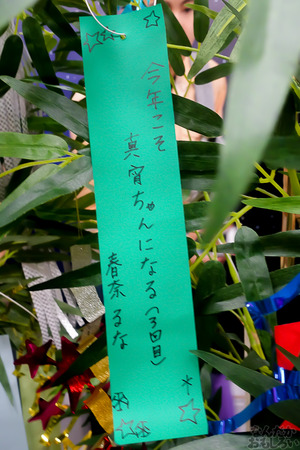 今年こそ
真宵ちゃんになる(3回目)
春奈るな